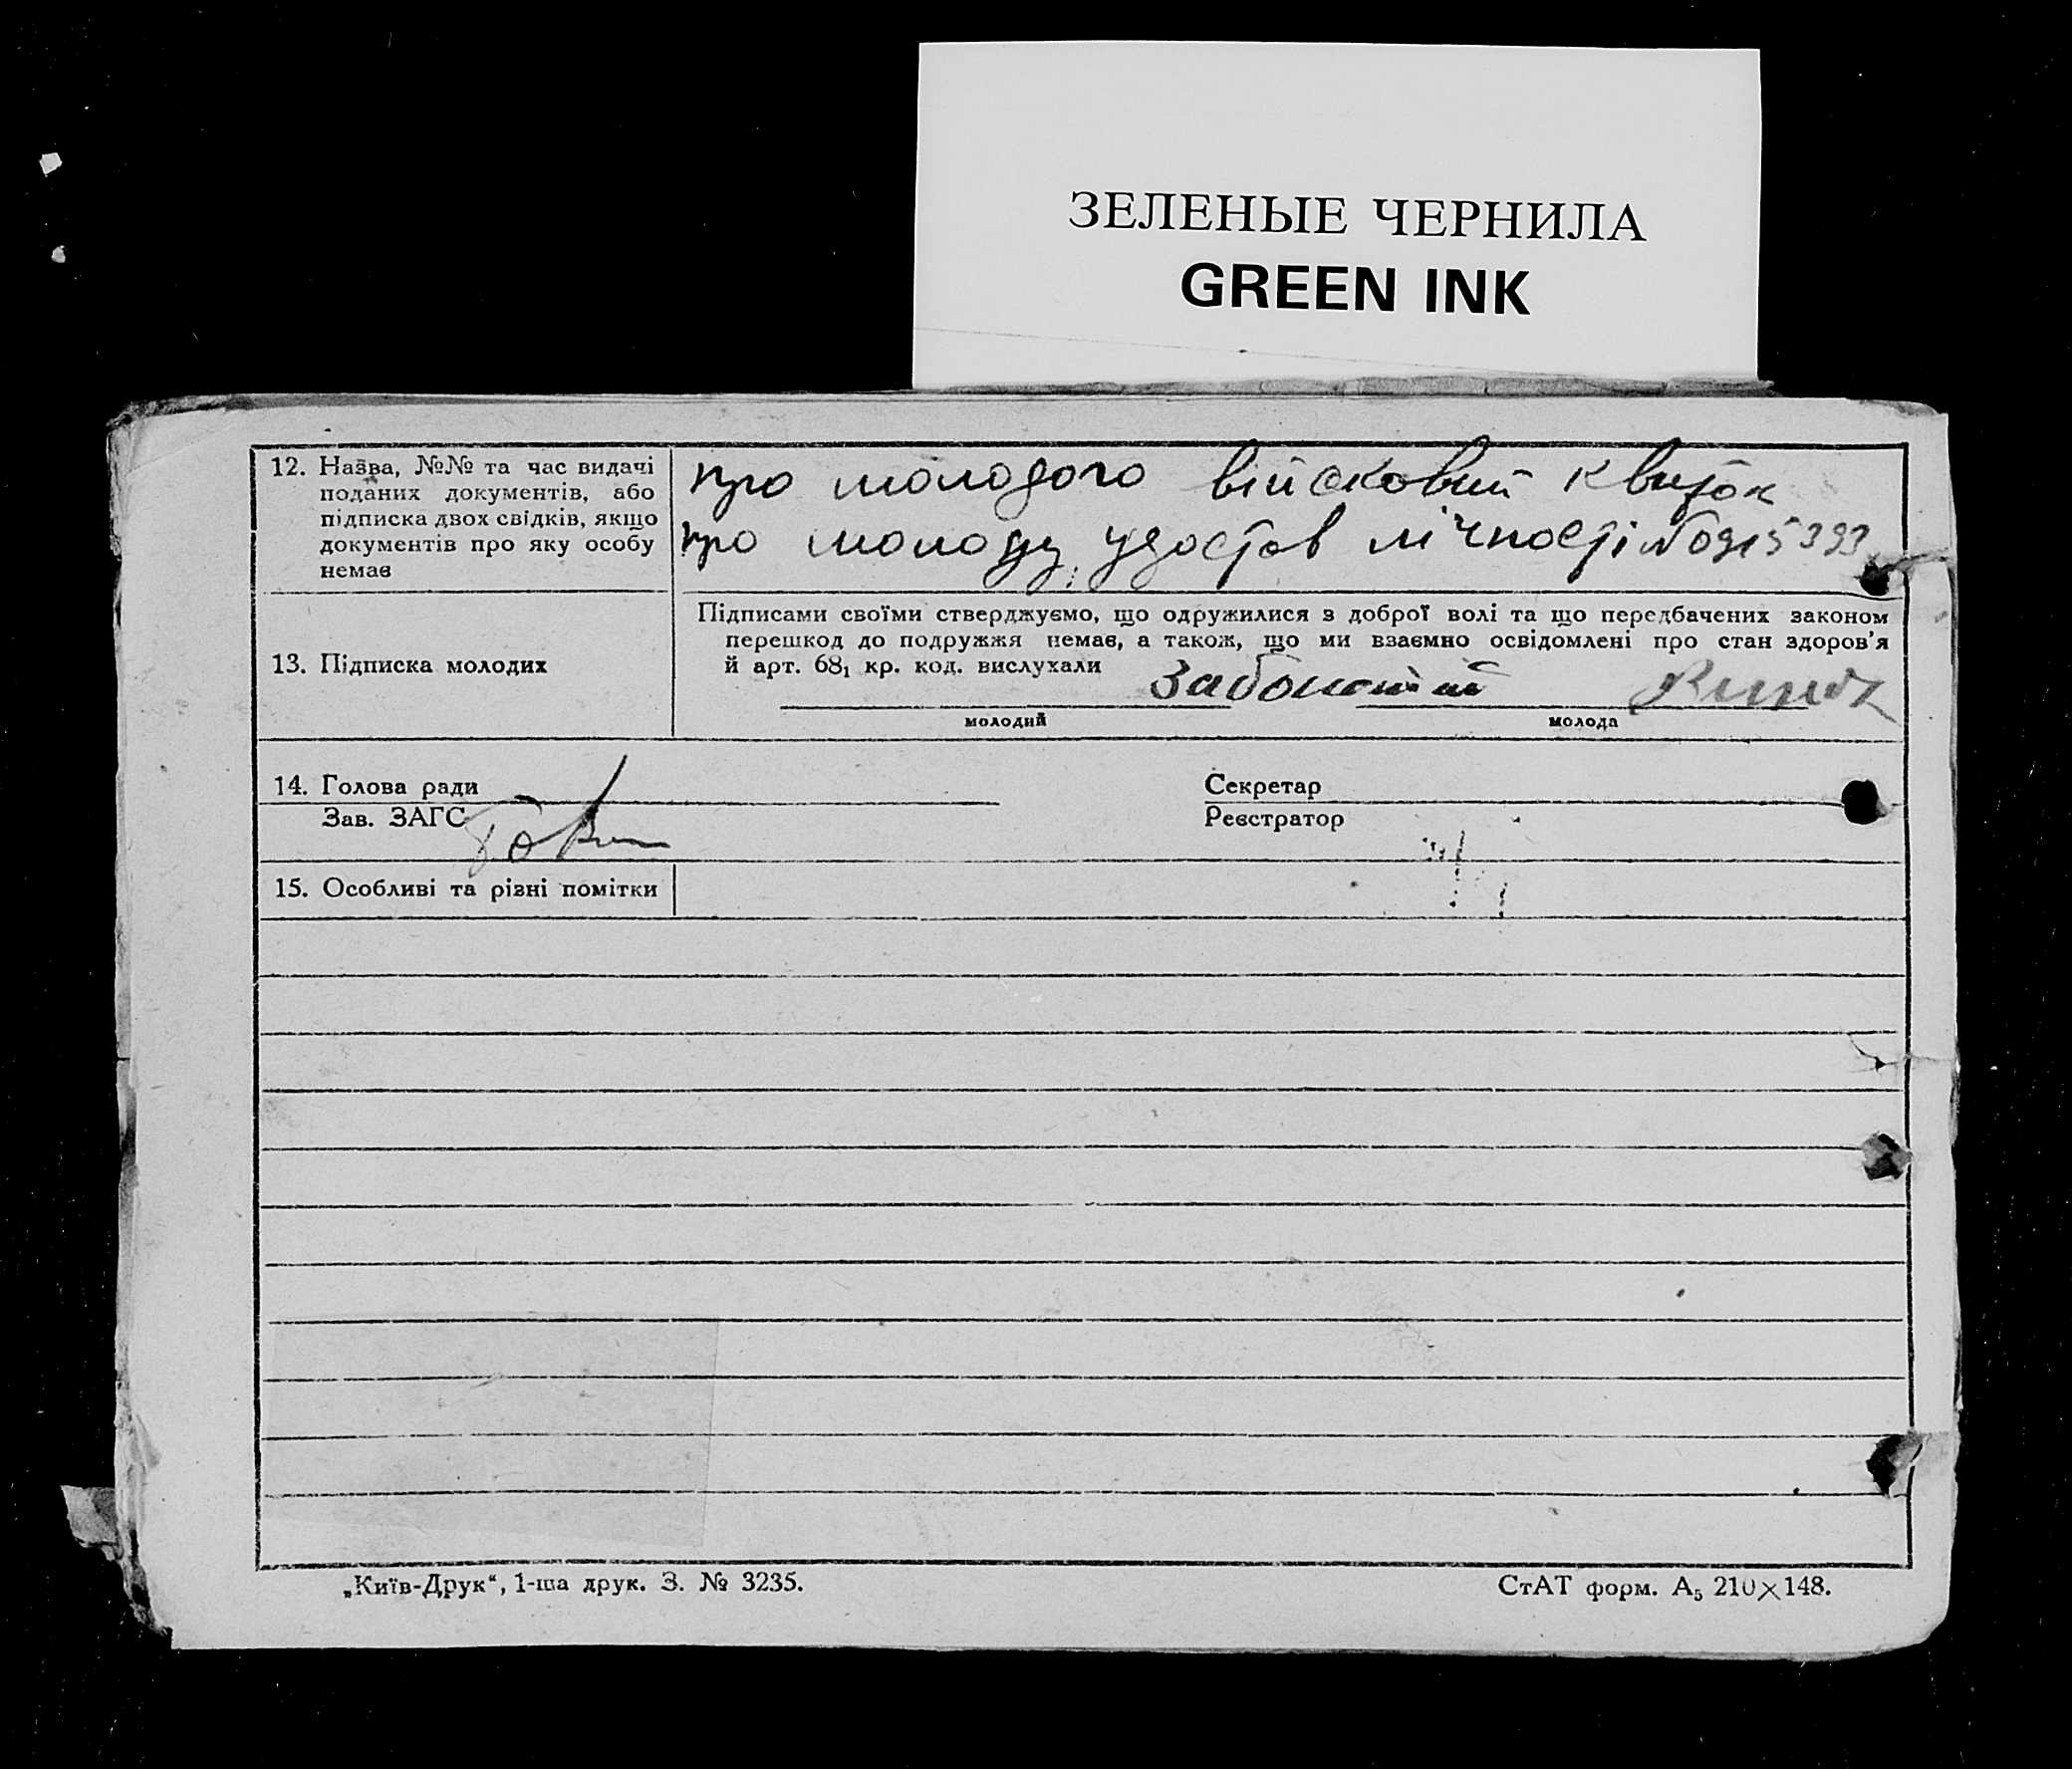 ЗЕЛЕНЫЕ ЧЕРНИЛА
GREEN INK
12. Назва, №№ та час видачі
поданих документів, або
підписка двох свідків, якщо
документів про яку особу
немає
про молодого війсковий квиток
про молоду удостов лічності №0915393
13. Підписка молодих
Підписами своїми стверджуємо, що одружилися з доброї волі та що передбачених законом
перешкод до подружжя немає, а також, що ми взаємно освідомлені про стан здоров'я
й арт. 68₁ кр. код. вислухали
молодий
молода
14. Голова ради
Секретар
Зав. ЗАГС
Реєстратор
15. Особливі та різні помітки
„Київ-Друк“, 1-ша друк. З. № 3235.
СтАТ форм. А₅ 210×148.